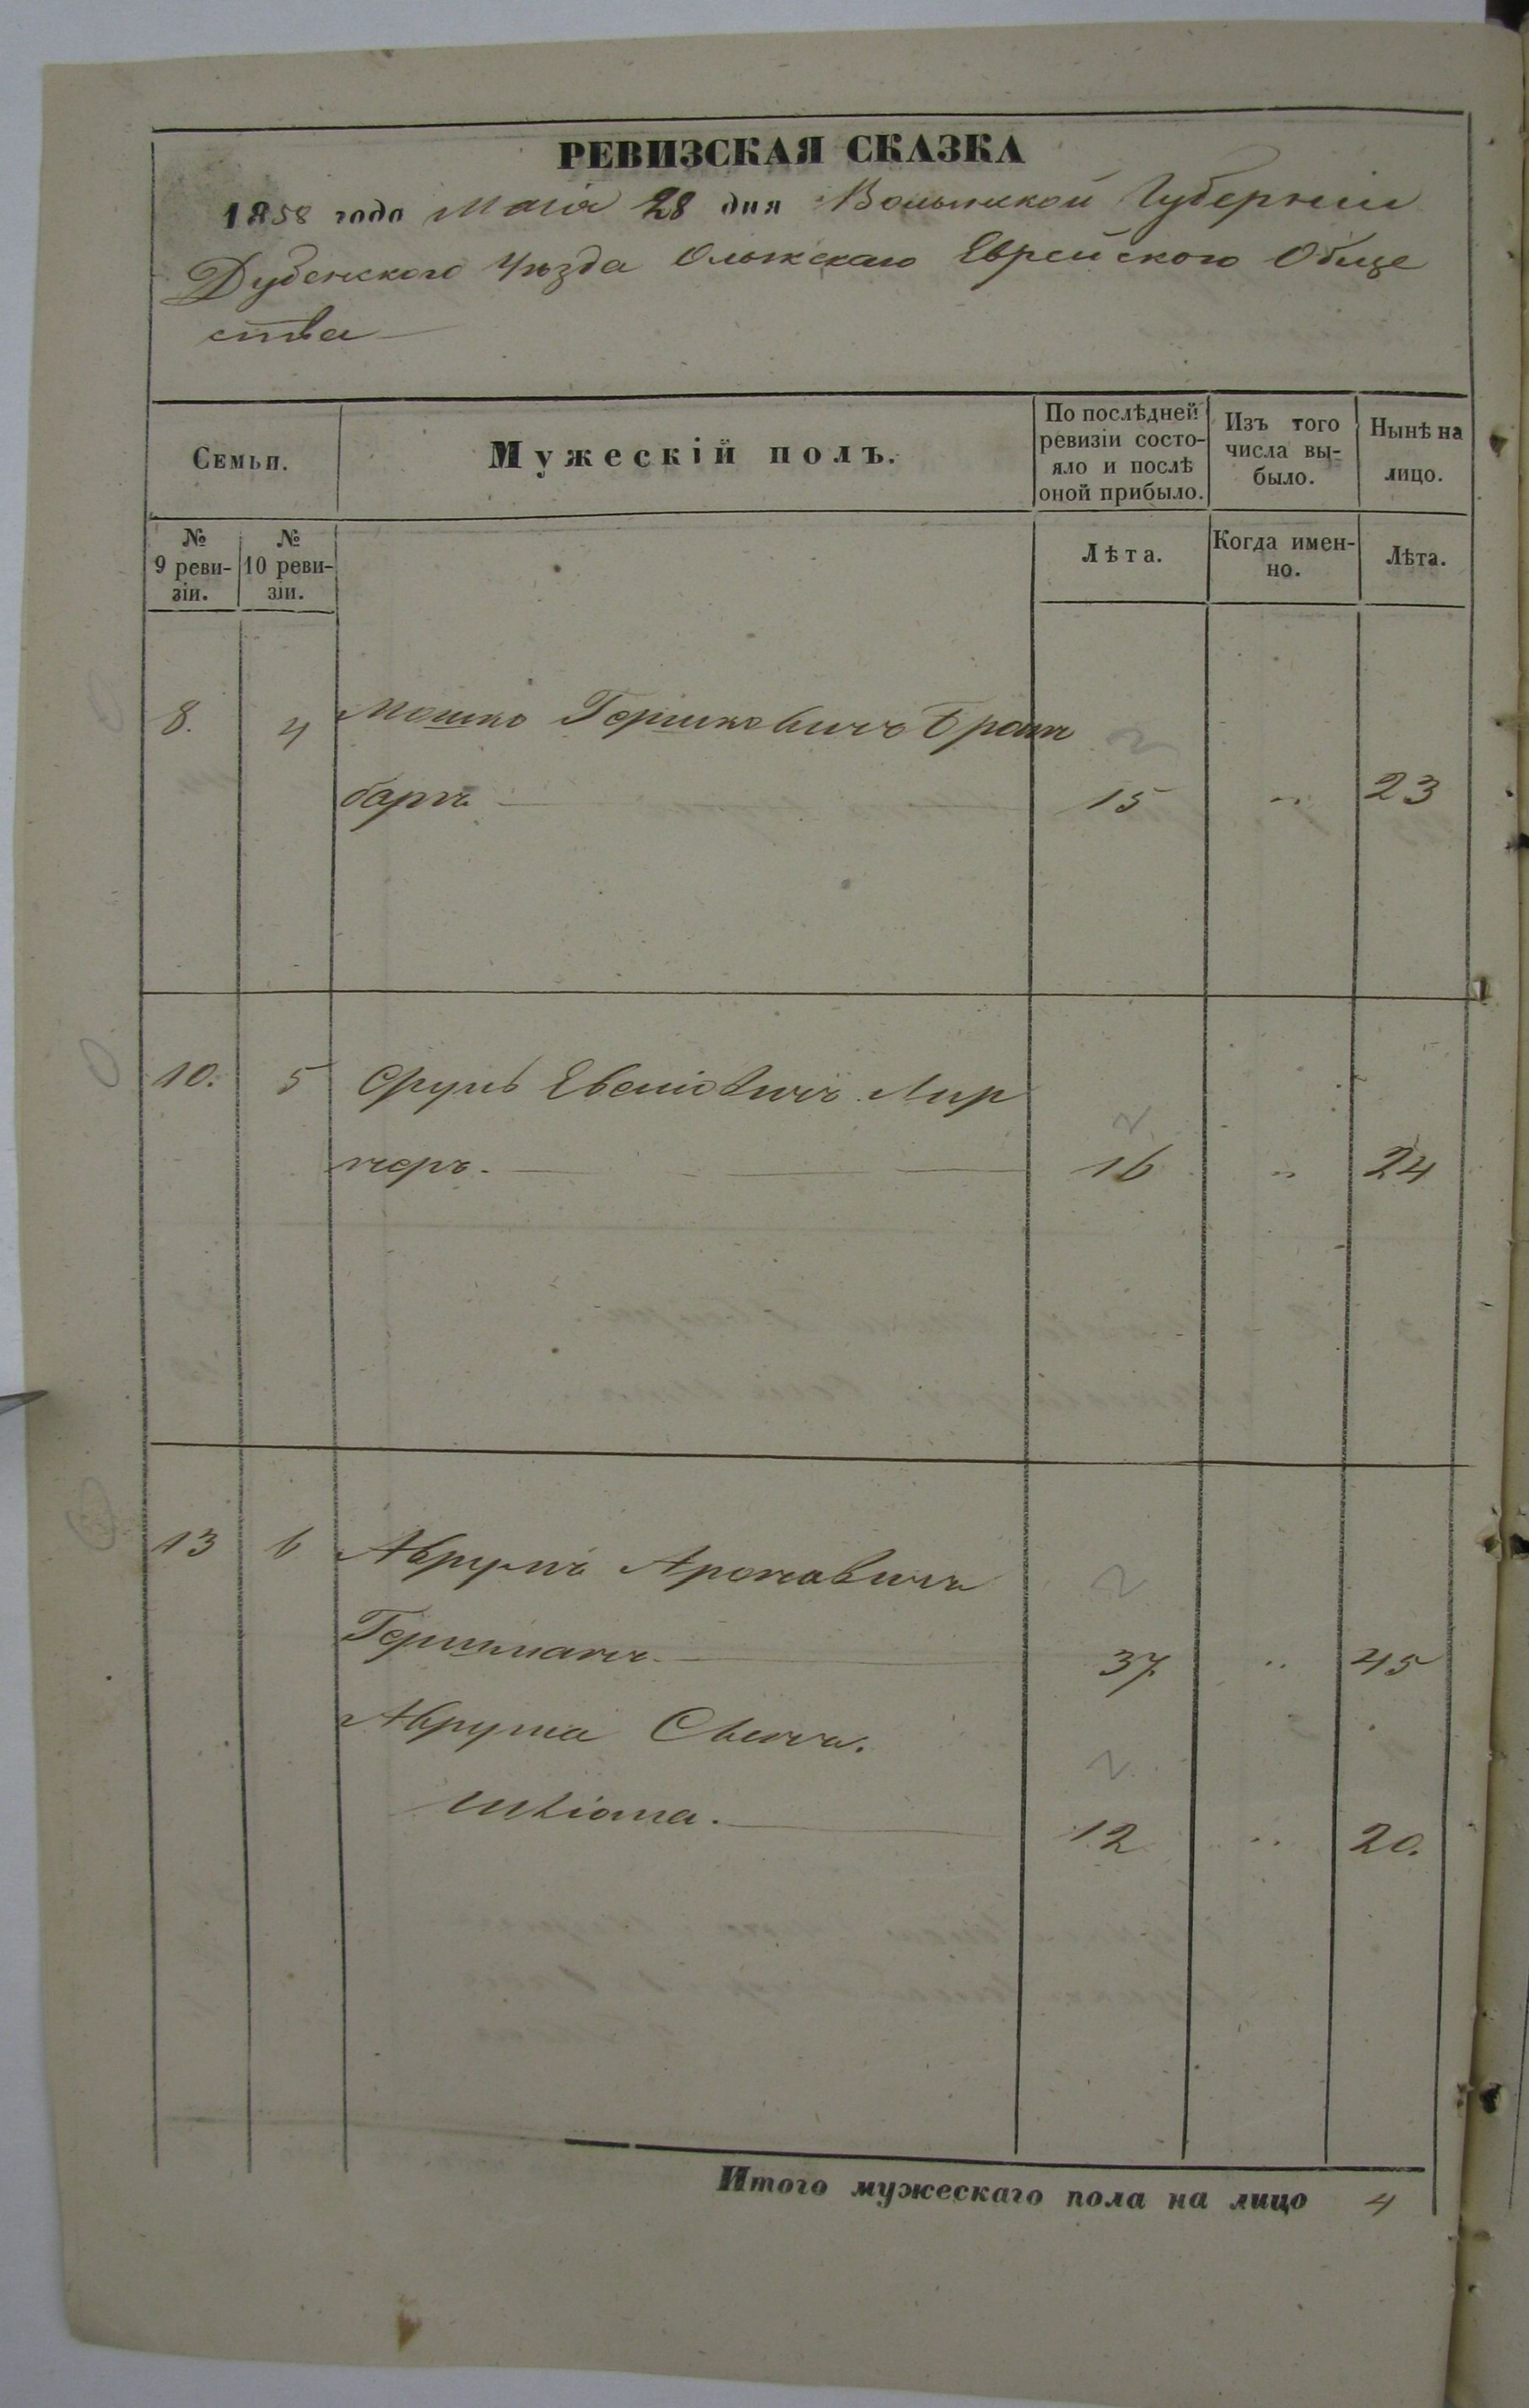 РЕВИЗСКАЯ СКАЗКА
1858 года Маія 28 дня Волынской Губерніи
Дубенского Уѣзда Олыкскаго Еврейского Обще
ства
Семьи.
Мужескій полъ.
По послѣдней ревизіи состо-
яло и послѣ
оной прибыло.
Изъ того
числа вы-
было.
Нынѣ на
лицо.
№
9 реви-
зіи.
№
10 реви-
зіи.
Лѣта.
Когда имен-
но.
Лѣта.
8. 4 Мошко Гершковичъ
15 „ 23
10. 5 Сруль Лир
черъ. 16 „ 24
13 6 Аврумъ Ароновичъ
Гершманъ. 37 „ 45
Аврума Сынъ.
12 „ 20.
Итого мужескаго пола на лицо 4